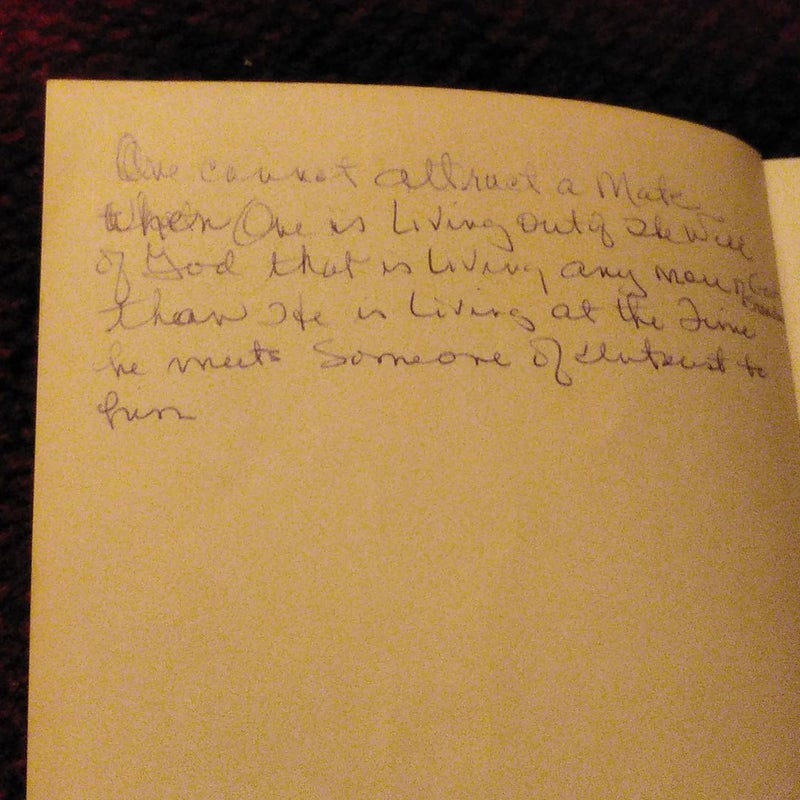 One cannot attract a Mate
when One is Living out of the Will
of God that is Living any
than He is Living at the Time
he meets Someone of Interest to
him